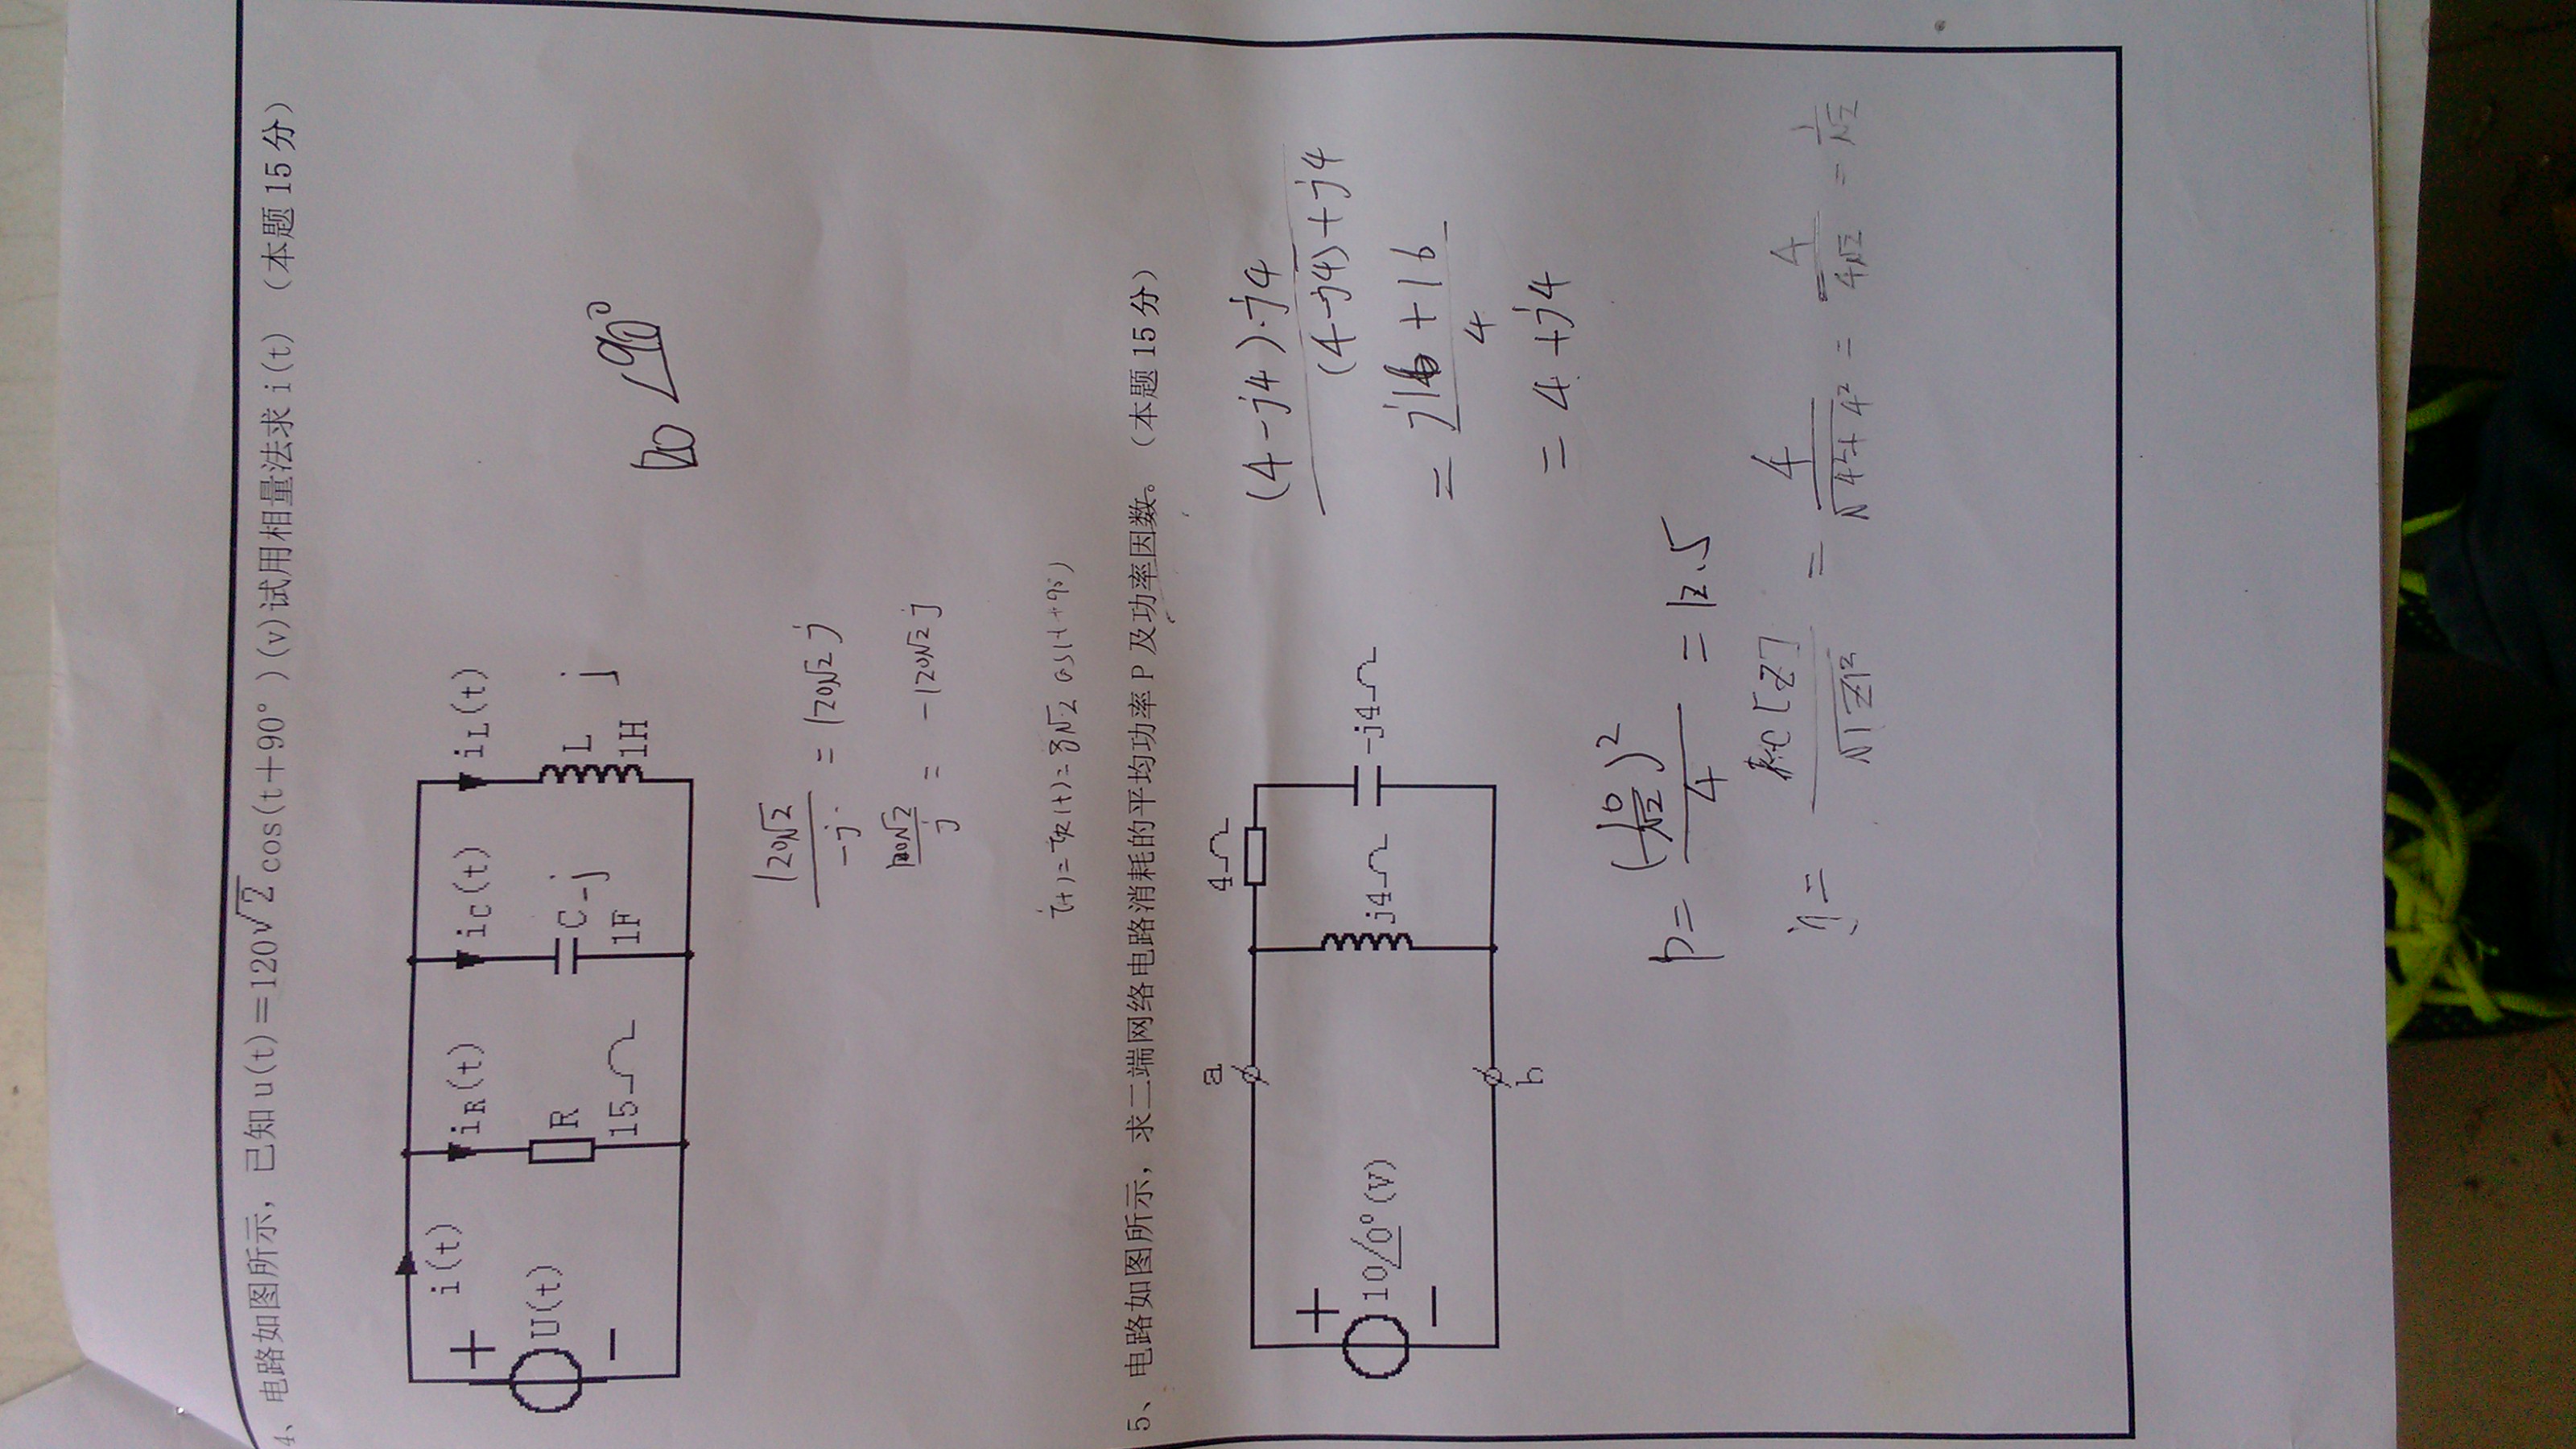 4、电路如图所示，已知u(t)＝120√2cos(t＋90°)(v)试用相量法求i(t) （本题15分）
i(t)
iR(t)
iC(t)
iL(t)
+
U(t)
−
R
15Ω
C -j
1F
L j
1H
120∠90°
120√2/-j = 120√2 j
120√2/j = -120√2 j
i(t)=iR(t)=8√2 cos(t+90°)
5、电路如图所示，求二端网络电路消耗的平均功率P及功率因数。（本题15分）
a
4Ω
+
10/0°(V)
−
j4Ω
-j4Ω
b
(4-j4)·j4/(4-j4)+j4
= j16+16/4
= 4+j4
P= (10/√2)²/4 = 12.5
η= Re[Z]/√|Z|² = 4/√4²+4² = 4/4√2 = 1/√2